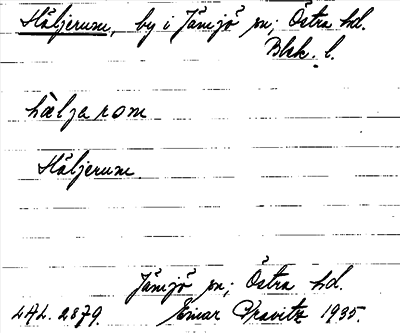 Häljerum, by i Jämjö sn; Östra hd.
Blek. l.
hælјarom
Häljerum.
Jämjö sn; Östra hd.
LAL. 2879. Einar Kravitz 1935.